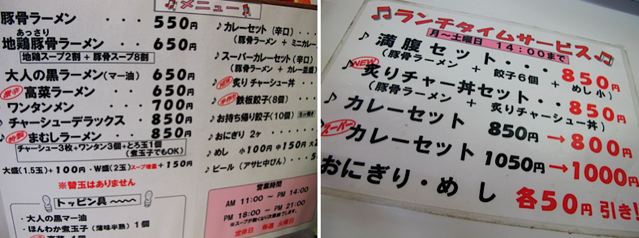 メニュー
豚骨ラーメン 550円
あっさり
地鶏豚骨ラーメン 650円
地鶏スープ2割 + 豚骨スープ8割
大人の黒ラーメン(マー油) 650円
激辛 高菜ラーメン 650円
ワンタンメン 700円
♪チャーシューデラックス 850円
♪特製 まむしラーメン 850円
チャーシュー3枚+ワンタン3個+とろ玉1個
(煮玉子でもOK)
大盛(1.5玉)+100円・W盛(2玉)スープ増量+150円
※替玉はありません
トッピン具〜
・大人の黒マー油
・ほんわか煮玉子(薄味半熟) 1個
♪カレーセット(辛口)
(豚骨ラーメン + ミニカレー
♪スーパーカレーセット(辛口)
(豚骨ラーメン + カレー
♪NEW 炙りチャーシュー丼
♪鉄板餃子(8個)
♪お持ち帰り餃子(10個)
♪おにぎり 2ケ
♪めし 小100円 中150円 大
♪ビール(アサヒ中びん)
営業時間
AM 11:00 〜 PM 14:00
PM 18:00 〜 PM 21:00
※スープが無くなり次第終了します。
定休日 毎週 火曜日
♫ランチタイムサービス♫
月〜土曜日 14:00まで
♪満腹セット・・・850円
(豚骨ラーメン + 餃子6個 + めし小)
NEW 炙りチャー丼セット・・850円
(豚骨ラーメン + 炙りチャーシュー丼)
♪カレーセット 850円→800円
スーパー カレーセット 1050円→1000円
おにぎり・めし 各50円引き!